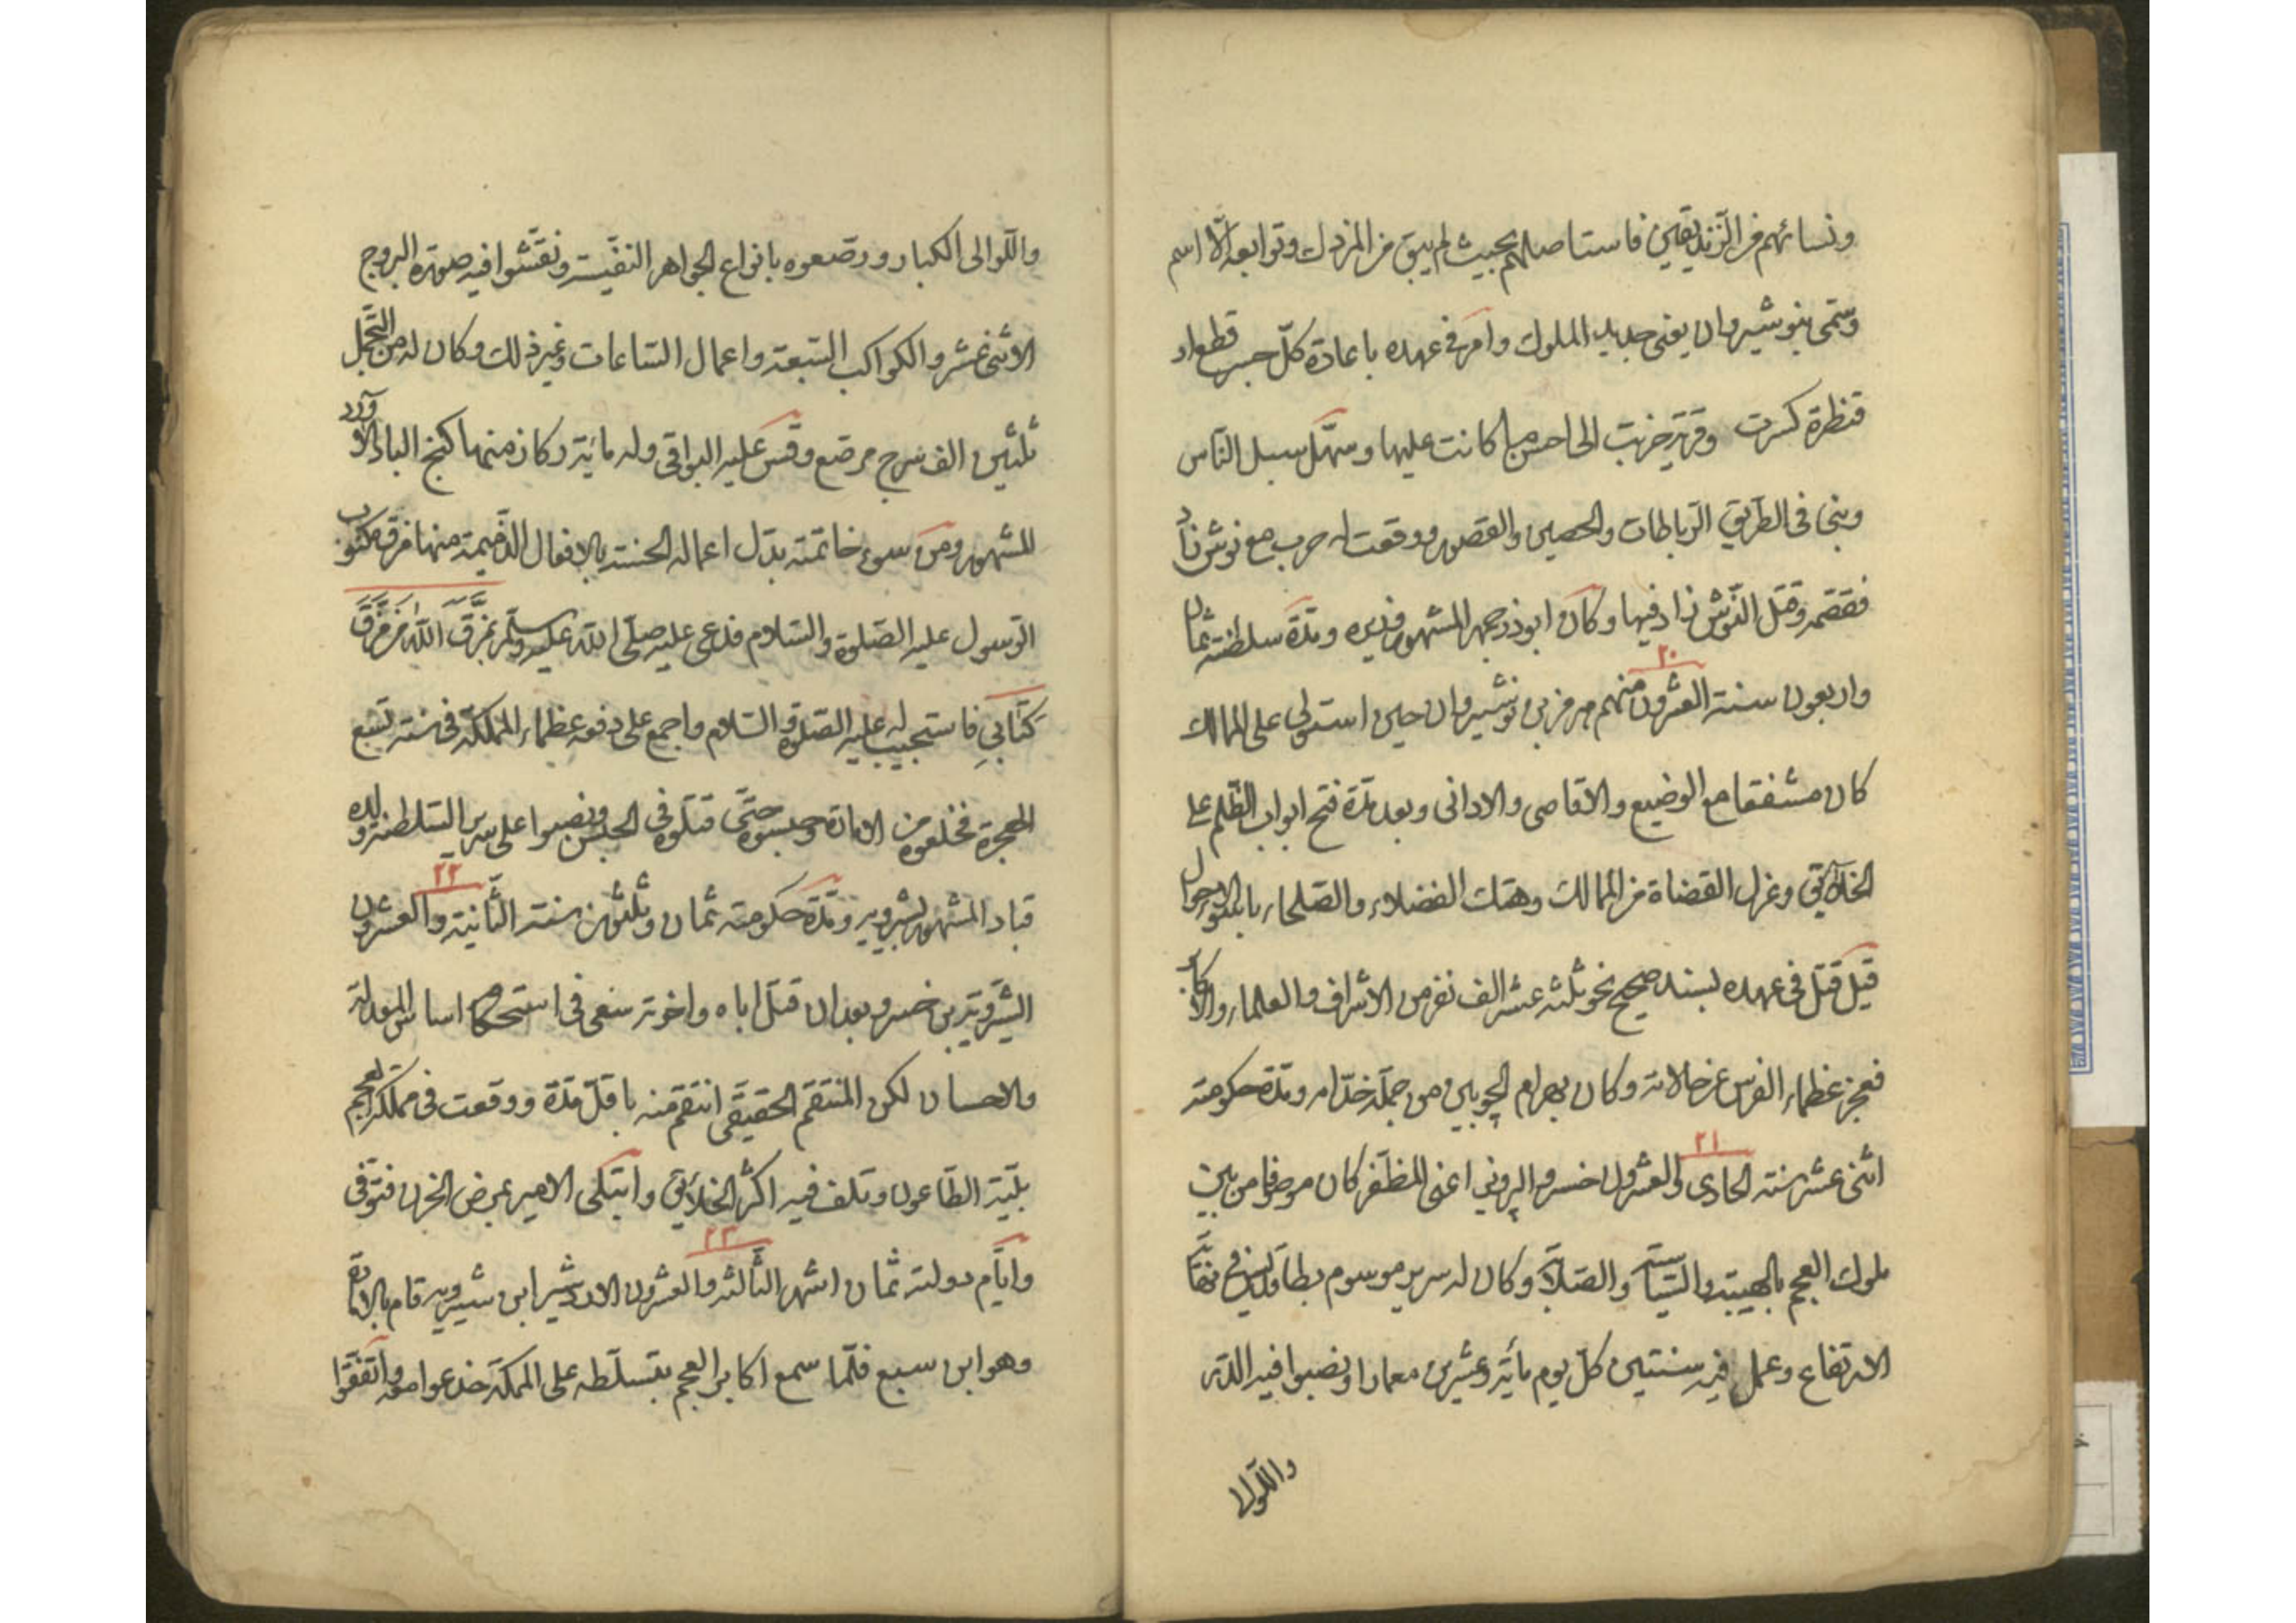 ونسائهم من الزنديقين فاستاصلهم بحيث لم يبق من المزدك وتوابعه الّا اسم
وسمّى بنوشيروان يعنى جديد الملوك وامر فى عهده باعادة كلّ جسر قطع او
قنطرة كسرت وقرية خربت الى احسن ما كانت عليها وسهّل سبل النّاس
وبنى فى الطريق الرّباطات والحصين والقصور ووقعت له حرب مع نوش زاد
فقصمه وقتل النّوش زاد فيها وكان ابوذرجمهر المشهور وزيره ومدّة سلطنته ثمان
واربعون سنة العشرون منهم هرمز بن نوشيروان حين استولى على الممالك
٢٠
كان مشفقا مع الوضيع والاقاصى والادانى وبعد مدّة فتح ابواب الظّلم على
الخلائق وعزل القضاة من الممالك وهتك الفضلاء والصّلحاء
قيل قتل فى عهده بسند صحيح نحو ثلثه عشر الف نفر من الاشراف والعلماء والاكابر
فعجز عظماء الفرس عن حالاته وكان بهرام الچوبين من جملة خدّامه ومدّة حكومته
اثنى عشر سنة الحادى والعشرون خسرو الپرويز اعنى المظفر كان موصوفا من بين
٢١
ملوك العجم بالهيبة والسّياسة والصّلابة وكان له سرير موسوم بطاقديس فى نهاية
الارتفاع وعمل فيه سنتين كلّ يوم مأية وعشرين معمارا ونصبوا فيه الدّر
واللّوالى
واللّوالى الكبار ورصّعوه بانواع الجواهر النفيسة ونقّشوا فيه صورة البروج
الاثنى عشر والكواكب السّبعة واعمال السّاعات وغير ذلك وكان له من التّجمّل
ثلثين الف سرج مرصّع وقس عليه البواقى وله مائة وكان منها كنج الباد الآورد
المشهور ومن سوء خاتمته بدّل اعماله الحسنة بالافعال الذّميمة منها فرق مكتوب
الرّسول عليه الصّلوة والسّلام فدعى عليه صلّى الله عليه وسلّم بمَزَّقَ اللّهُ مَنْ مَزَّقَ
كتابى فاستجيب له عليه الصّلوة والسّلام واجمع على دفعه عظماء المملكة فى سنة تسع
الهجرة فخلعوه من الامارة وحبسوه حتّى قتلوه فى الحبس ونصبوا على سرير السّلطنة ولده
قباد المشهور بشيرويه ومدّة حكومته ثمان وثلثون سنة الثّانية والعشرون
٢٢
الشّيرويه بن خسرو بعد ان قتل اباه واخوته سعى فى استحكام اساس المعدلة
والاحسان لكن المنتقم الحقيقى انتقم منه باقلّ مدّة ووقعت فى مملكة العجم
بليّة الطّاعون وتلف فيه اكثر الخلائق وابتلى الامير بمرض الحزن فتوفّى
وايّام دولته ثمان اشهر الثّالثه والعشرون الاردشير ابن شيرويه قام بالامارة
٢٣
وهو ابن سبع فلمّا سمع اكابر العجم بتسلّطه على المملكة واتّفقوا